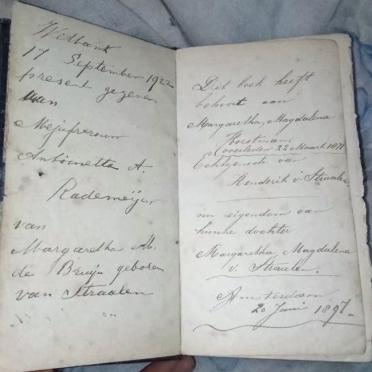 Witbank
17 September 1922
present gegeven
aan
Mejufvrouw
Antoinetta A.
Rademeijer
van
Margaretha M.
de Bruijn geboren
van Straalen
Dit boek heeft
behoort aan
Margaretha, Magdalena
Horstman
overleden 22 Maart 1891
Echtgenoot van
Hendrik v Straalen
nu eigendom van
hunne dochter
Margaretha, Magdalena
v. Straalen.
Amsterdam
20 Juni 1897.